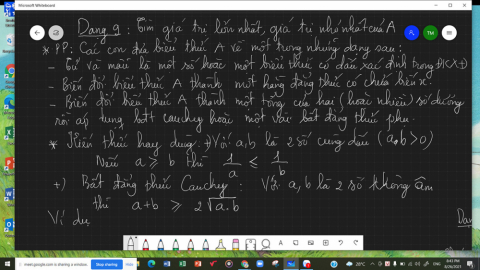 Microsoft Whiteboard
Dạng 9: Tìm giá trị lớn nhất, giá trị nhỏ nhất của A
* PP: Các con đưa biểu thức A về một trong những dạng sau:
- Tử và mẫu là một số hoặc một biểu thức có dấu xác định trong ĐKXĐ
- Biến đổi biểu thức A thành một hằng đẳng thức có chứa biến x.
- Biến đổi biểu thức A thành một tổng của hai (hoặc nhiều) số dương
rồi áp dụng bđt cauchy hoặc một vài bất đẳng thức phụ.
* Kiến thức hay dùng: +) Với a, b là 2 số cùng dấu (a.b > 0)
Nếu a ≥ b thì 1/a ≤ 1/b
+) Bất đẳng thức Cauchy: Với a, b là 2 số không âm
thì a+b ≥ 2√a.b
Ví dụ
TM
meet.google.com is sharing a window.
Stop sharing
Hide
28°C
ENG
8:45 PM
8/26/2021